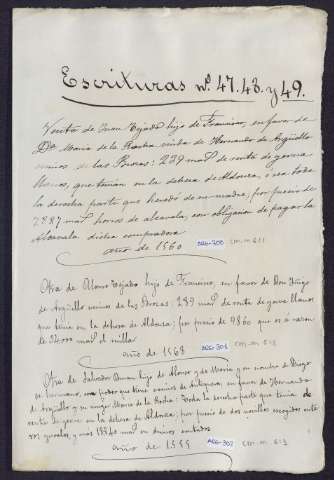 Escrituras nº. 47. 48. y 49.
Venta de Juan Tejado hijo de Francisco, en favor de
Dª Maria de la Rocha viuda de Hernando de Argüello
vecinos de las Brozas: 229 mas/ de renta de yerva
llanos, que tenian en la dehesa de Aldonza, o sea toda
la derecha parte que heredó de su madre; por precio de
2287 mas/ horros de alcavala, con obligacion de pagar la
Alcavala dicha compradora
año de 1560
ARG-300 CM-M 611
Otra de Alonso Tejado hijo de Francisco, en favor de Don Iñigo
de Argüello vecinos de las Brozas: 289 mas/ de renta de yerva llanos
que tenia en la dehesa de Aldonza; por precio de 9860 que es á razon
de mas/ el millar
año de 1568
ARG-301 CM-M 612
Otra de Salvador Duran hijo de Alonso y de Maria y en nombre de Diego
su hermano, con poder que tiene vecinos de en favor de Hernando
de Argüello y su muger Maria de la Rocha: toda la derecha parte que tenia de
renta de yerva en la dehesa de Aldonza, por precio de dos novillos escogidos entre
sus ganados, y mas mas/ en dineros contados
año de 1555
ARG-302 CM-M 613